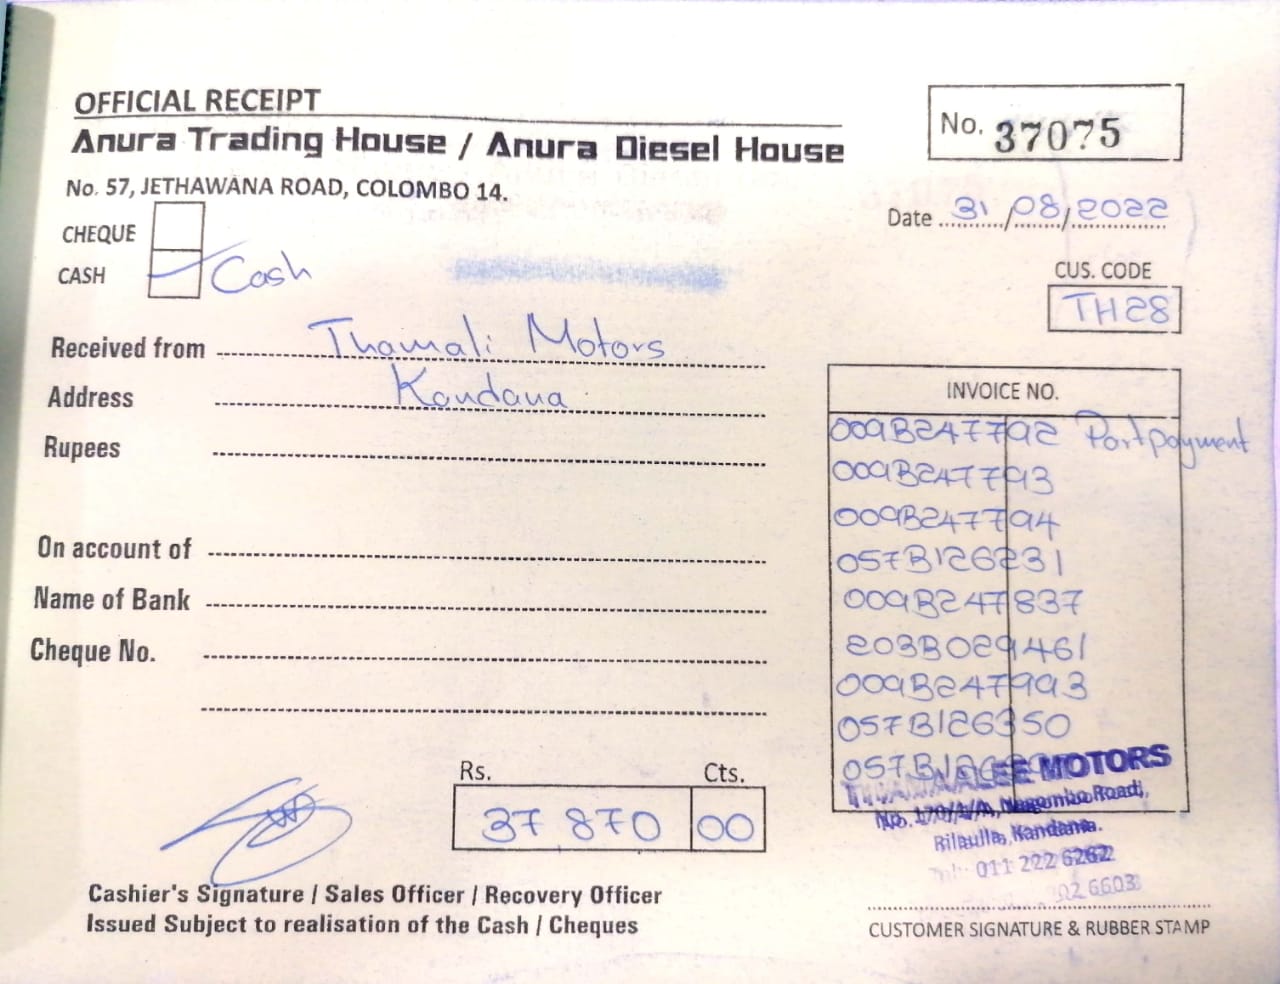 OFFICIAL RECEIPT
No. 37075
Anura Trading House / Anura Diesel House
No. 57, JETHAWANA ROAD, COLOMBO 14.
Date 31/08/2022
CHEQUE
CASH Cash
CUS. CODE
TH28
Received from Thamali Motors
Address Kandana
Rupees
INVOICE NO.
009B247792 Part payment
009B247793
009B247794
057B126231
009B247837
203B029461
009B247993
057B126350
On account of
Name of Bank
Cheque No.
Rs. Cts.
37 870 00
MOTORS
No. 170/1/A, Negombo Road,
Rilaulla, Kandana.
011 222 6262
202 6603
Cashier's Signature / Sales Officer / Recovery Officer
Issued Subject to realisation of the Cash / Cheques
CUSTOMER SIGNATURE & RUBBER STAMP